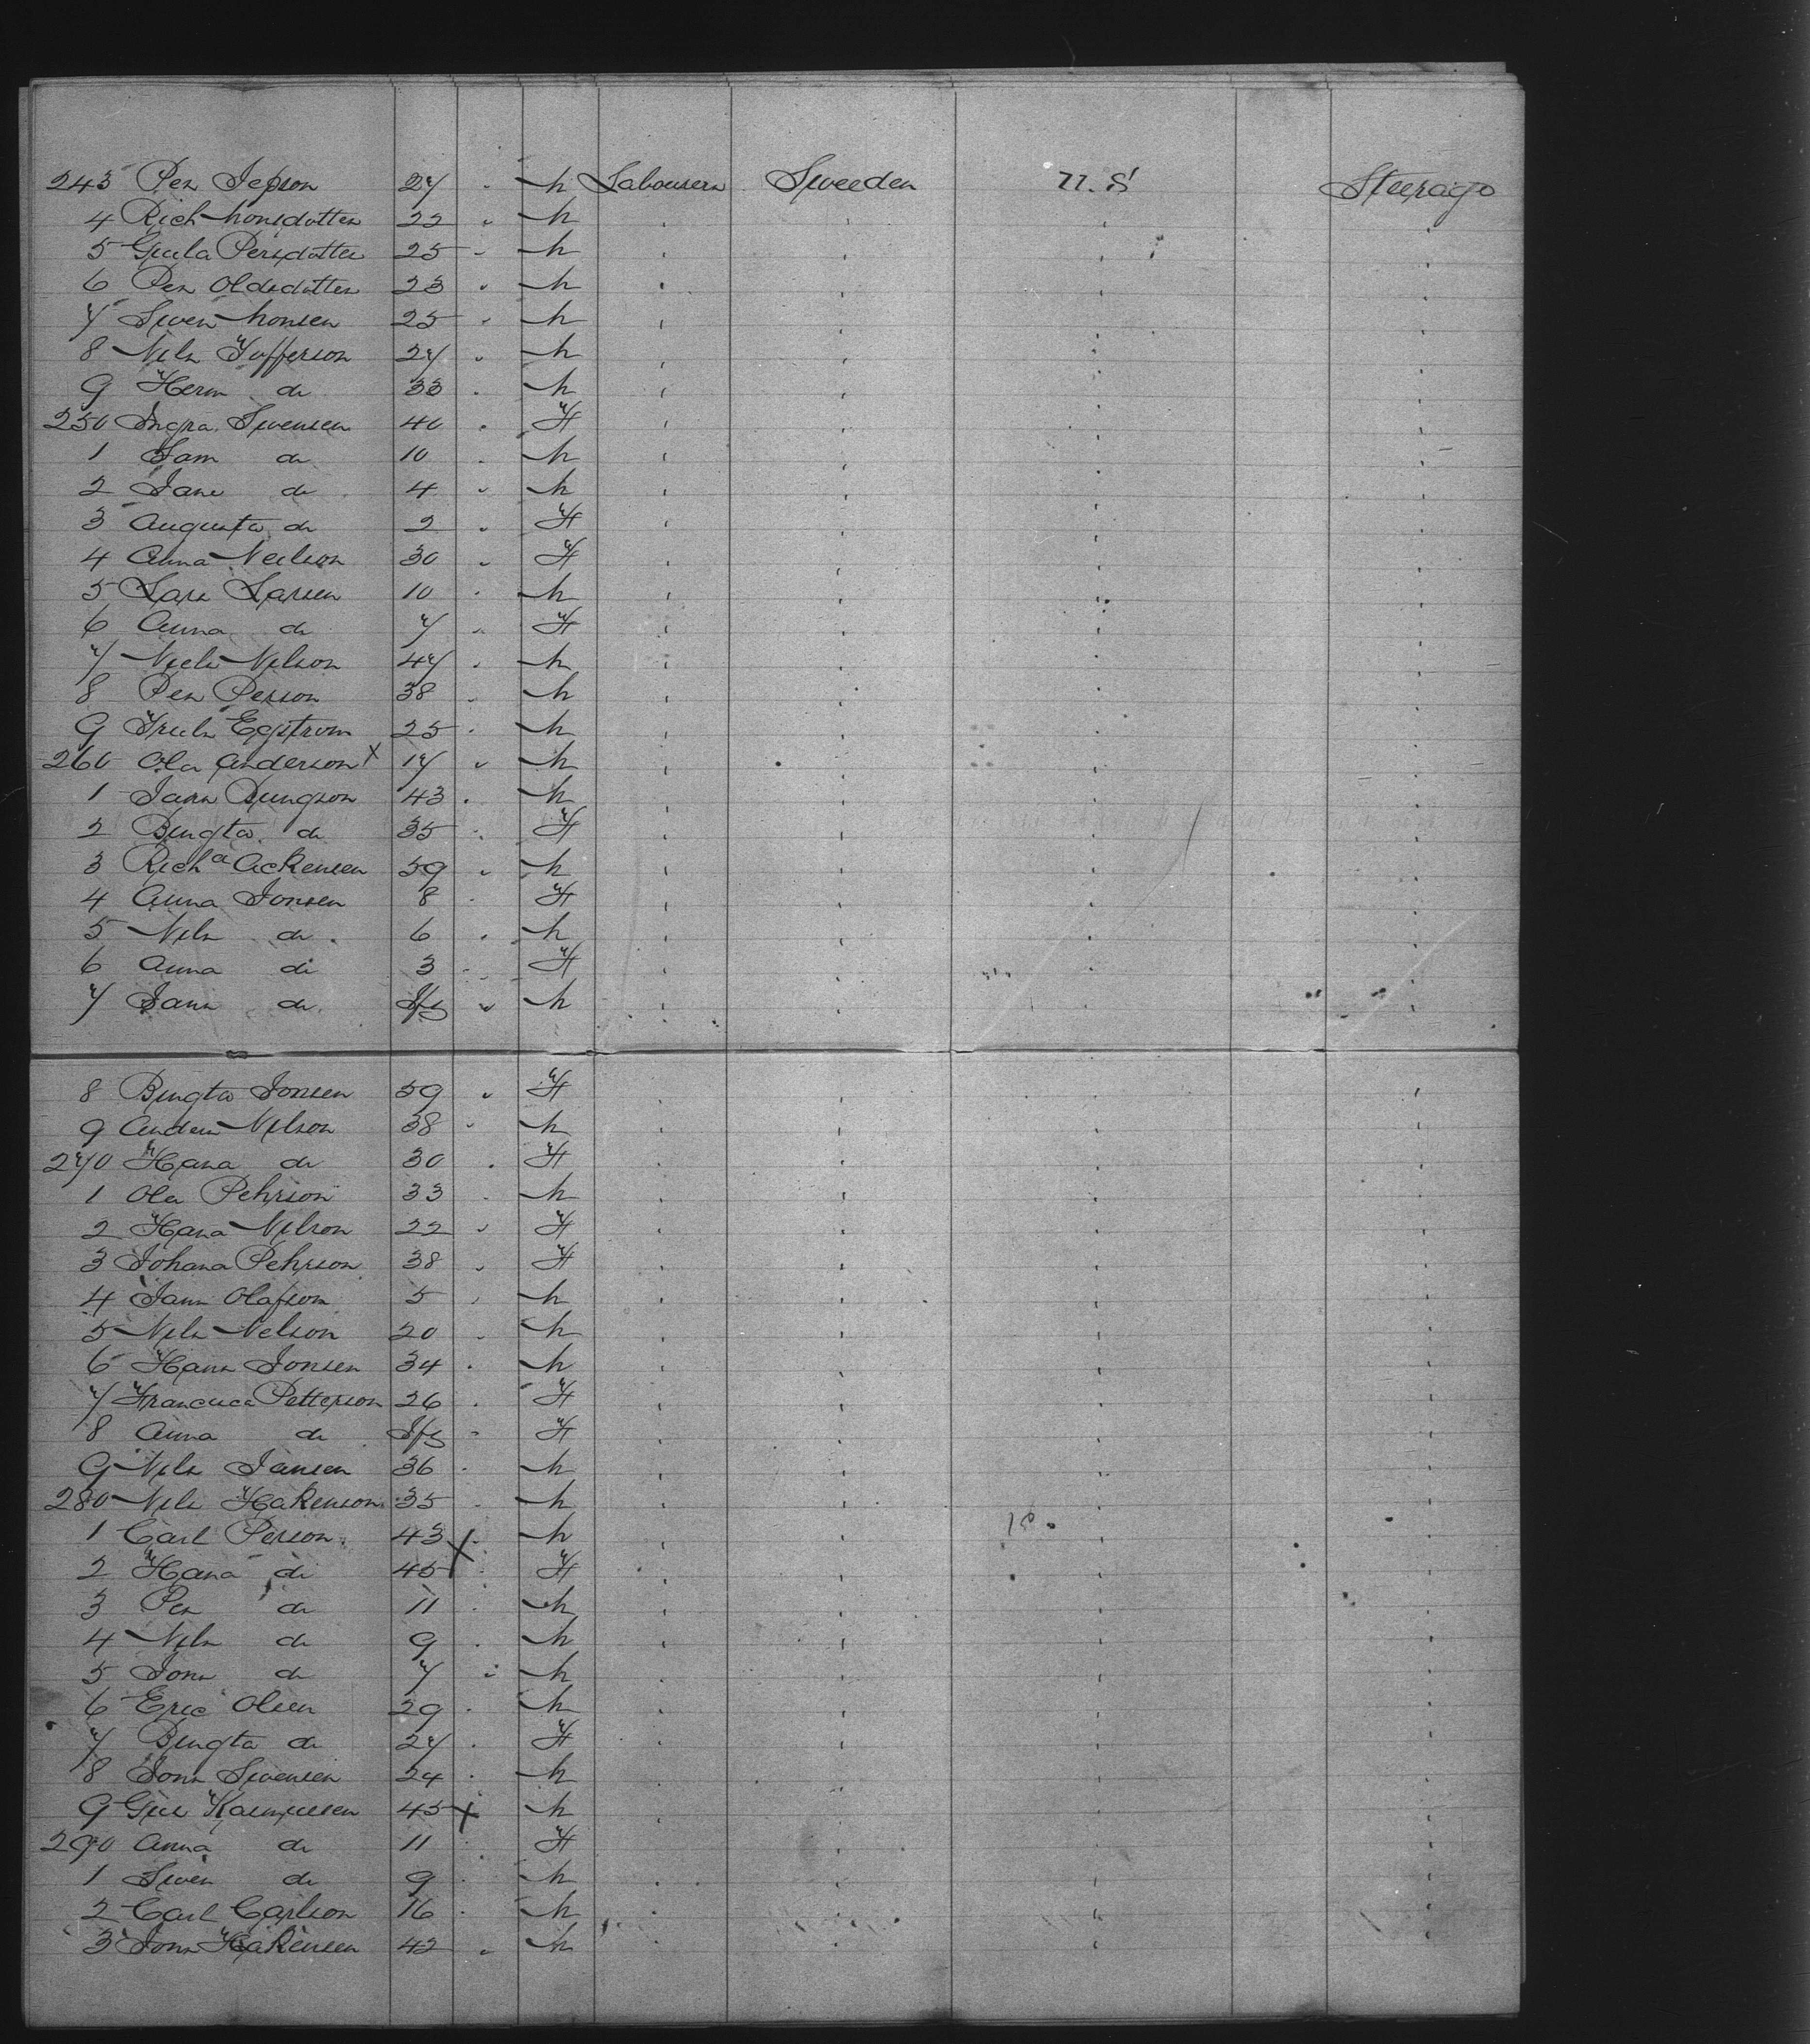 243 Per Jepson 27 " m Labourers Sweeden U.S Steerage
4 Rich Monsdotter 22 " m
5 Gula Persdotter 25 " m
6 Per Oldsdotter 23 " m
7 Swen Monsen 25 " m
8 Nils Tufferson 27 " m
9 Herm do 33 " m
250 Ingra Swensen 40 " F
1 Sam do 10 " m
2 Jane do 4 " m
3 Augusta do 2 " F
4 Anna Neilson 30 " F
5 Lars Larsen 10 " m
6 Anna do 7 " F
7 Niels Nilson 47 " m
8 Per Person 38 " m
9 Truls Egstrom 25 " m
260 Ola Anderson x 17 " m
1 Jans Bungson 43 " m
2 Bengta do 35 " F
3 Richa Ackensen 59 " m
4 Anna Jonsen 8 " F
5 Nils do 6 " m
6 Anna do 3 " F
7 Jann do Inf " m
8 Bengta Jonsen 59 " F
9 Anders Nilson 38 " m
270 Hana do 30 " F
1 Ola Pehrson 33 " m
2 Hana Nilson 22 " F
3 Johana Pehrson 38 " F
4 Jann Olafson 5 " m
5 Nils Nelson 20 " m
6 Hans Jonsen 34 " m
7 Francisca Petterson 26 " F
8 Anna do Inf " F
9 Nils Jansen 36 " m
280 Nils Hakenson 35 " m
1 Carl Person 43 x " m
2 Hana do 45 " F
3 Per do 11 " m
4 Nils do 9 " m
5 Jons do 7 " m
6 Eric Olsen 29 " m
7 Bengta do 27 " F
8 Jons Swensen 24 " m
9 Gus Rasmussen 45 x m
290 Anna do 11 " F
1 Swen do 9 " m
2 Carl Carlson 16 " m
3 Jons Hakensen 42 " m